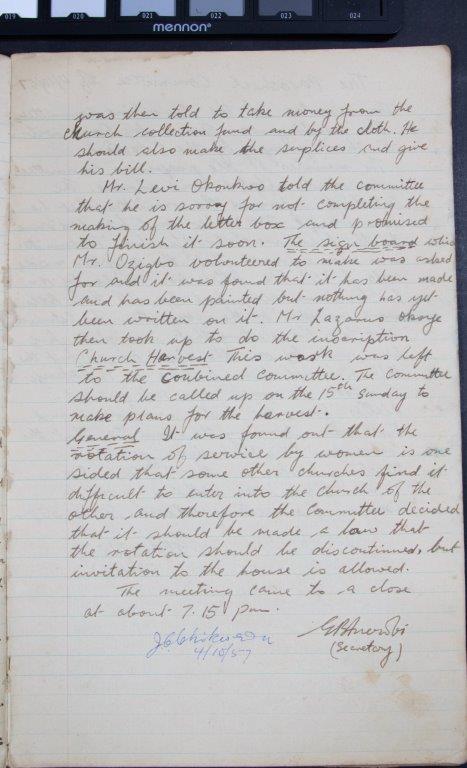 019 020 021 022 023 024
mennon®
was then told to take money from the
church collection fund and by the cloth. He
should also make the surplices and give
his bill.
Mr. Levi Okonkwo told the committee
that he is sorry for not completing the
making of the letter box and promised
to finish it soon. The sign board which
Mr. Ozigbo volunteered to make was asked
for and it was found that it has been made
and has been painted but nothing has yet
been written on it. Mr Lazarus Okoye
then took up to do the inscription
Church Harvest This work was left
to the combined committee. The committee
should be called up on the 15th Sunday to
make plans for the harvest.
General It was found out that the
rotation of service by women is one
sided that some other churches find it
difficult to enter into the church of the
other and therefore the committee decided
that it should be made a law that
the rotation should be discontinued, but
invitation to the house is allowed.
The meeting came to a close
at about 7.15 pm.
4/10/57
(Secretary)